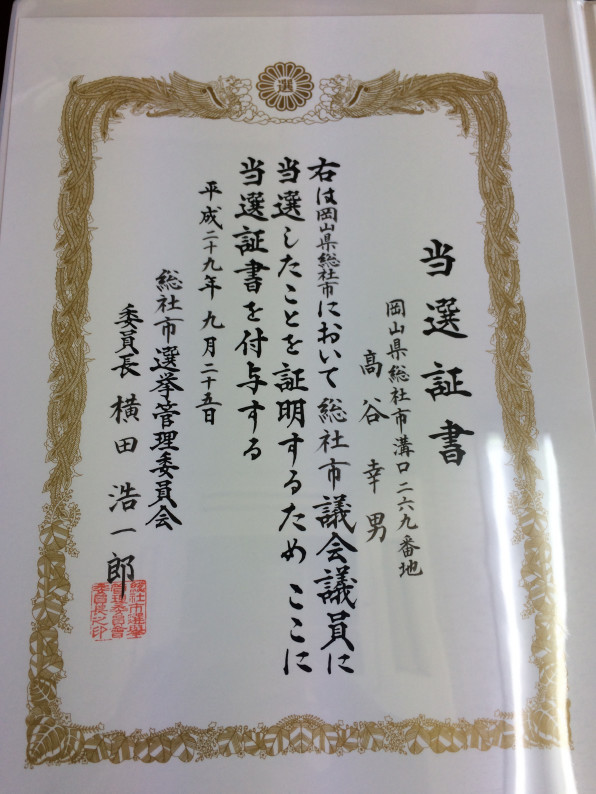 選
当選証書
岡山県総社市溝口二六九番地
髙谷幸男
右は岡山県総社市において総社市議会議員に
当選したことを証明するため ここに
当選証書を付与する
平成二十九年九月二十五日
総社市選挙管理委員会
委員長 横田浩一郎
総社市選挙
管理委員会
委員長之印